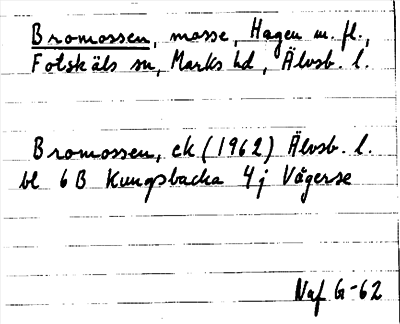 Bromossen, mosse, Hagen m. fl.,
Fotskäls sn, Marks hd, Älvsb. l.
Bromossen, ek (1962) Älvsb. l.
bl 6 B Kungsbacka 4j Vägerse
Naf G-62